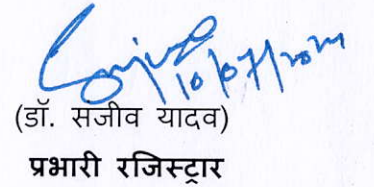 10/07/2024
(डॉ. सजीव यादव)
प्रभारी रजिस्ट्रार